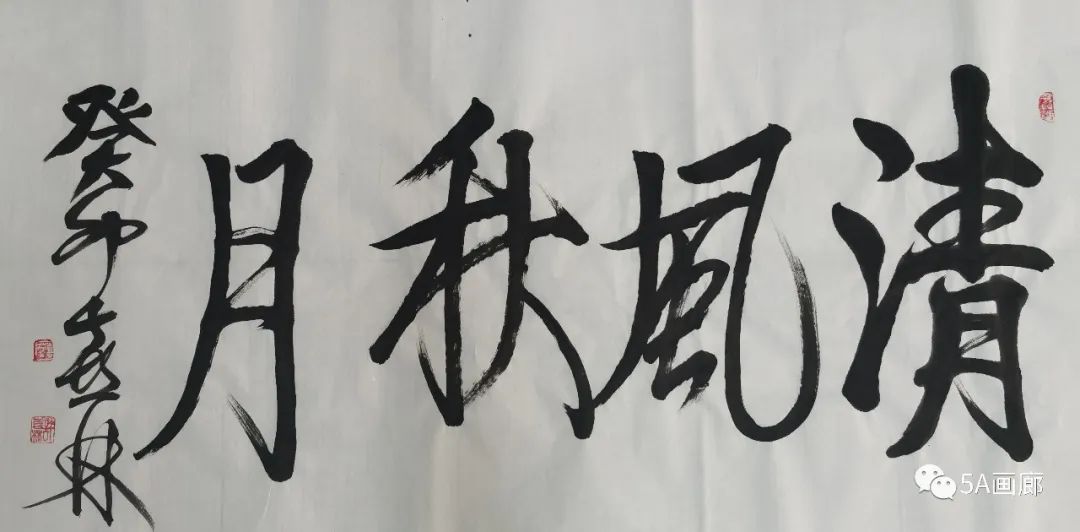 清風秋月
癸卯喜林
5A画廊